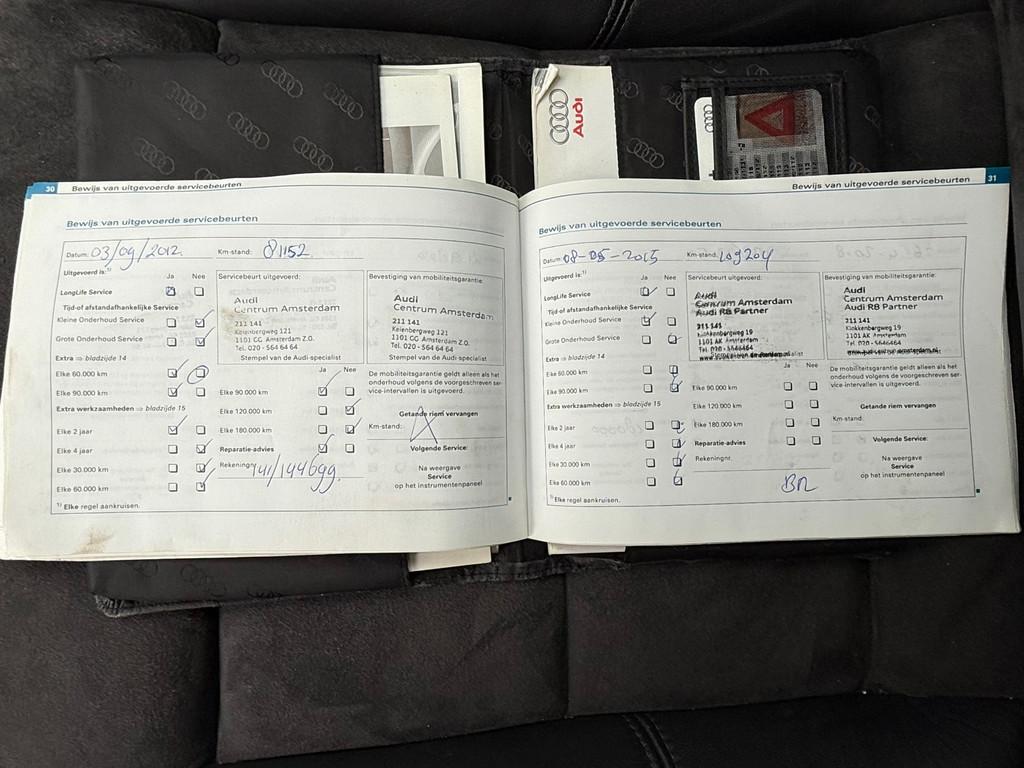 Audi
30 Bewijs van uitgevoerde servicebeurten
Bewijs van uitgevoerde servicebeurten
Datum: 03/09/2012 Km-stand: 81152
Uitgevoerd is:¹⁾ Ja Nee
LongLife Service
Tijd-of afstandafhankelijke Service
Kleine Onderhoud Service
Grote Onderhoud Service
Extra ⇒ bladzijde 14
Elke 60.000 km
Elke 90.000 km
Extra werkzaamheden ⇒ bladzijde 15
Elke 2 jaar
Elke 4 jaar
Elke 30.000 km
Elke 60.000 km
¹⁾ Elke regel aankruisen.
Servicebeurt uitgevoerd:
Audi
Centrum Amsterdam
211 141
Keienbergweg 121
1101 GG Amsterdam Z.O.
Tel. 020 - 564 64 64
Stempel van de Audi-specialist
Ja Nee
Elke 90.000 km
Elke 120.000 km
Elke 180.000 km
Reparatie-advies
Rekeningnr.
Bevestiging van mobiliteitsgarantie:
Audi
Centrum Amsterdam
211 141
Keienbergweg 121
1101 GG Amsterdam Z.O.
Tel. 020 - 564 64 64
Stempel van de Audi-specialist
De mobiliteitsgarantie geldt alleen als het
onderhoud volgens de voorgeschreven ser-
vice-intervallen is uitgevoerd.
Getande riem vervangen
Km-stand:
Volgende Service:
Na weergave
Service
op het instrumentenpaneel
Bewijs van uitgevoerde servicebeurten 31
Bewijs van uitgevoerde servicebeurten
Datum: 08-05-2015 Km-stand: 109204
Uitgevoerd is:¹⁾ Ja Nee
LongLife Service
Tijd-of afstandafhankelijke Service
Kleine Onderhoud Service
Grote Onderhoud Service
Extra ⇒ bladzijde 14
Elke 60.000 km
Elke 90.000 km
Extra werkzaamheden ⇒ bladzijde 15
Elke 2 jaar
Elke 4 jaar
Elke 30.000 km
Elke 60.000 km
¹⁾ Elke regel aankruisen.
Servicebeurt uitgevoerd:
Audi
Centrum Amsterdam
Audi R8 Partner
211 141
Klokkenbergweg 19
1101 AK Amsterdam
Tel. 020 - 5646464
Elke 90.000 km
Elke 120.000 km
Elke 180.000 km
Reparatie-advies
Rekeningnr.
Bevestiging van mobiliteitsgarantie:
Audi
Centrum Amsterdam
Audi R8 Partner
211 141
Klokkenbergweg 19
1101 AK Amsterdam
Tel. 020 - 5646464
De mobiliteitsgarantie geldt alleen als het
onderhoud volgens de voorgeschreven ser-
vice-intervallen is uitgevoerd.
Getande riem vervangen
Km-stand:
Volgende Service:
Na weergave
Service
op het instrumentenpaneel